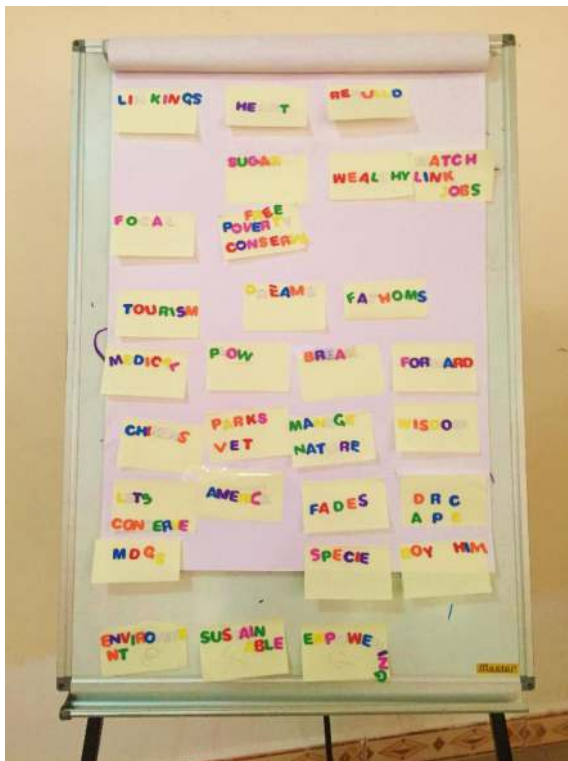 LINKINGS
HEART
REBUILD
SUGAR
WEALTHY
MATCH
LINK
JOBS
FOCAL
FREE
POVERTY
CONSERVE
TOURISM
DREAMS
FATHOMS
MEDICAL
PLOW
BREAK
FORWARD
PARKS
VET
MANAGE
NATURE
WISDOM
LETS
CONSERVE
AMERICA
FADES
DRC
APE
MDGS
SPECIE
BOY HIM
ENVIRONME
NT
SUSTAIN
ABLE
EMPOWE
RING
Master